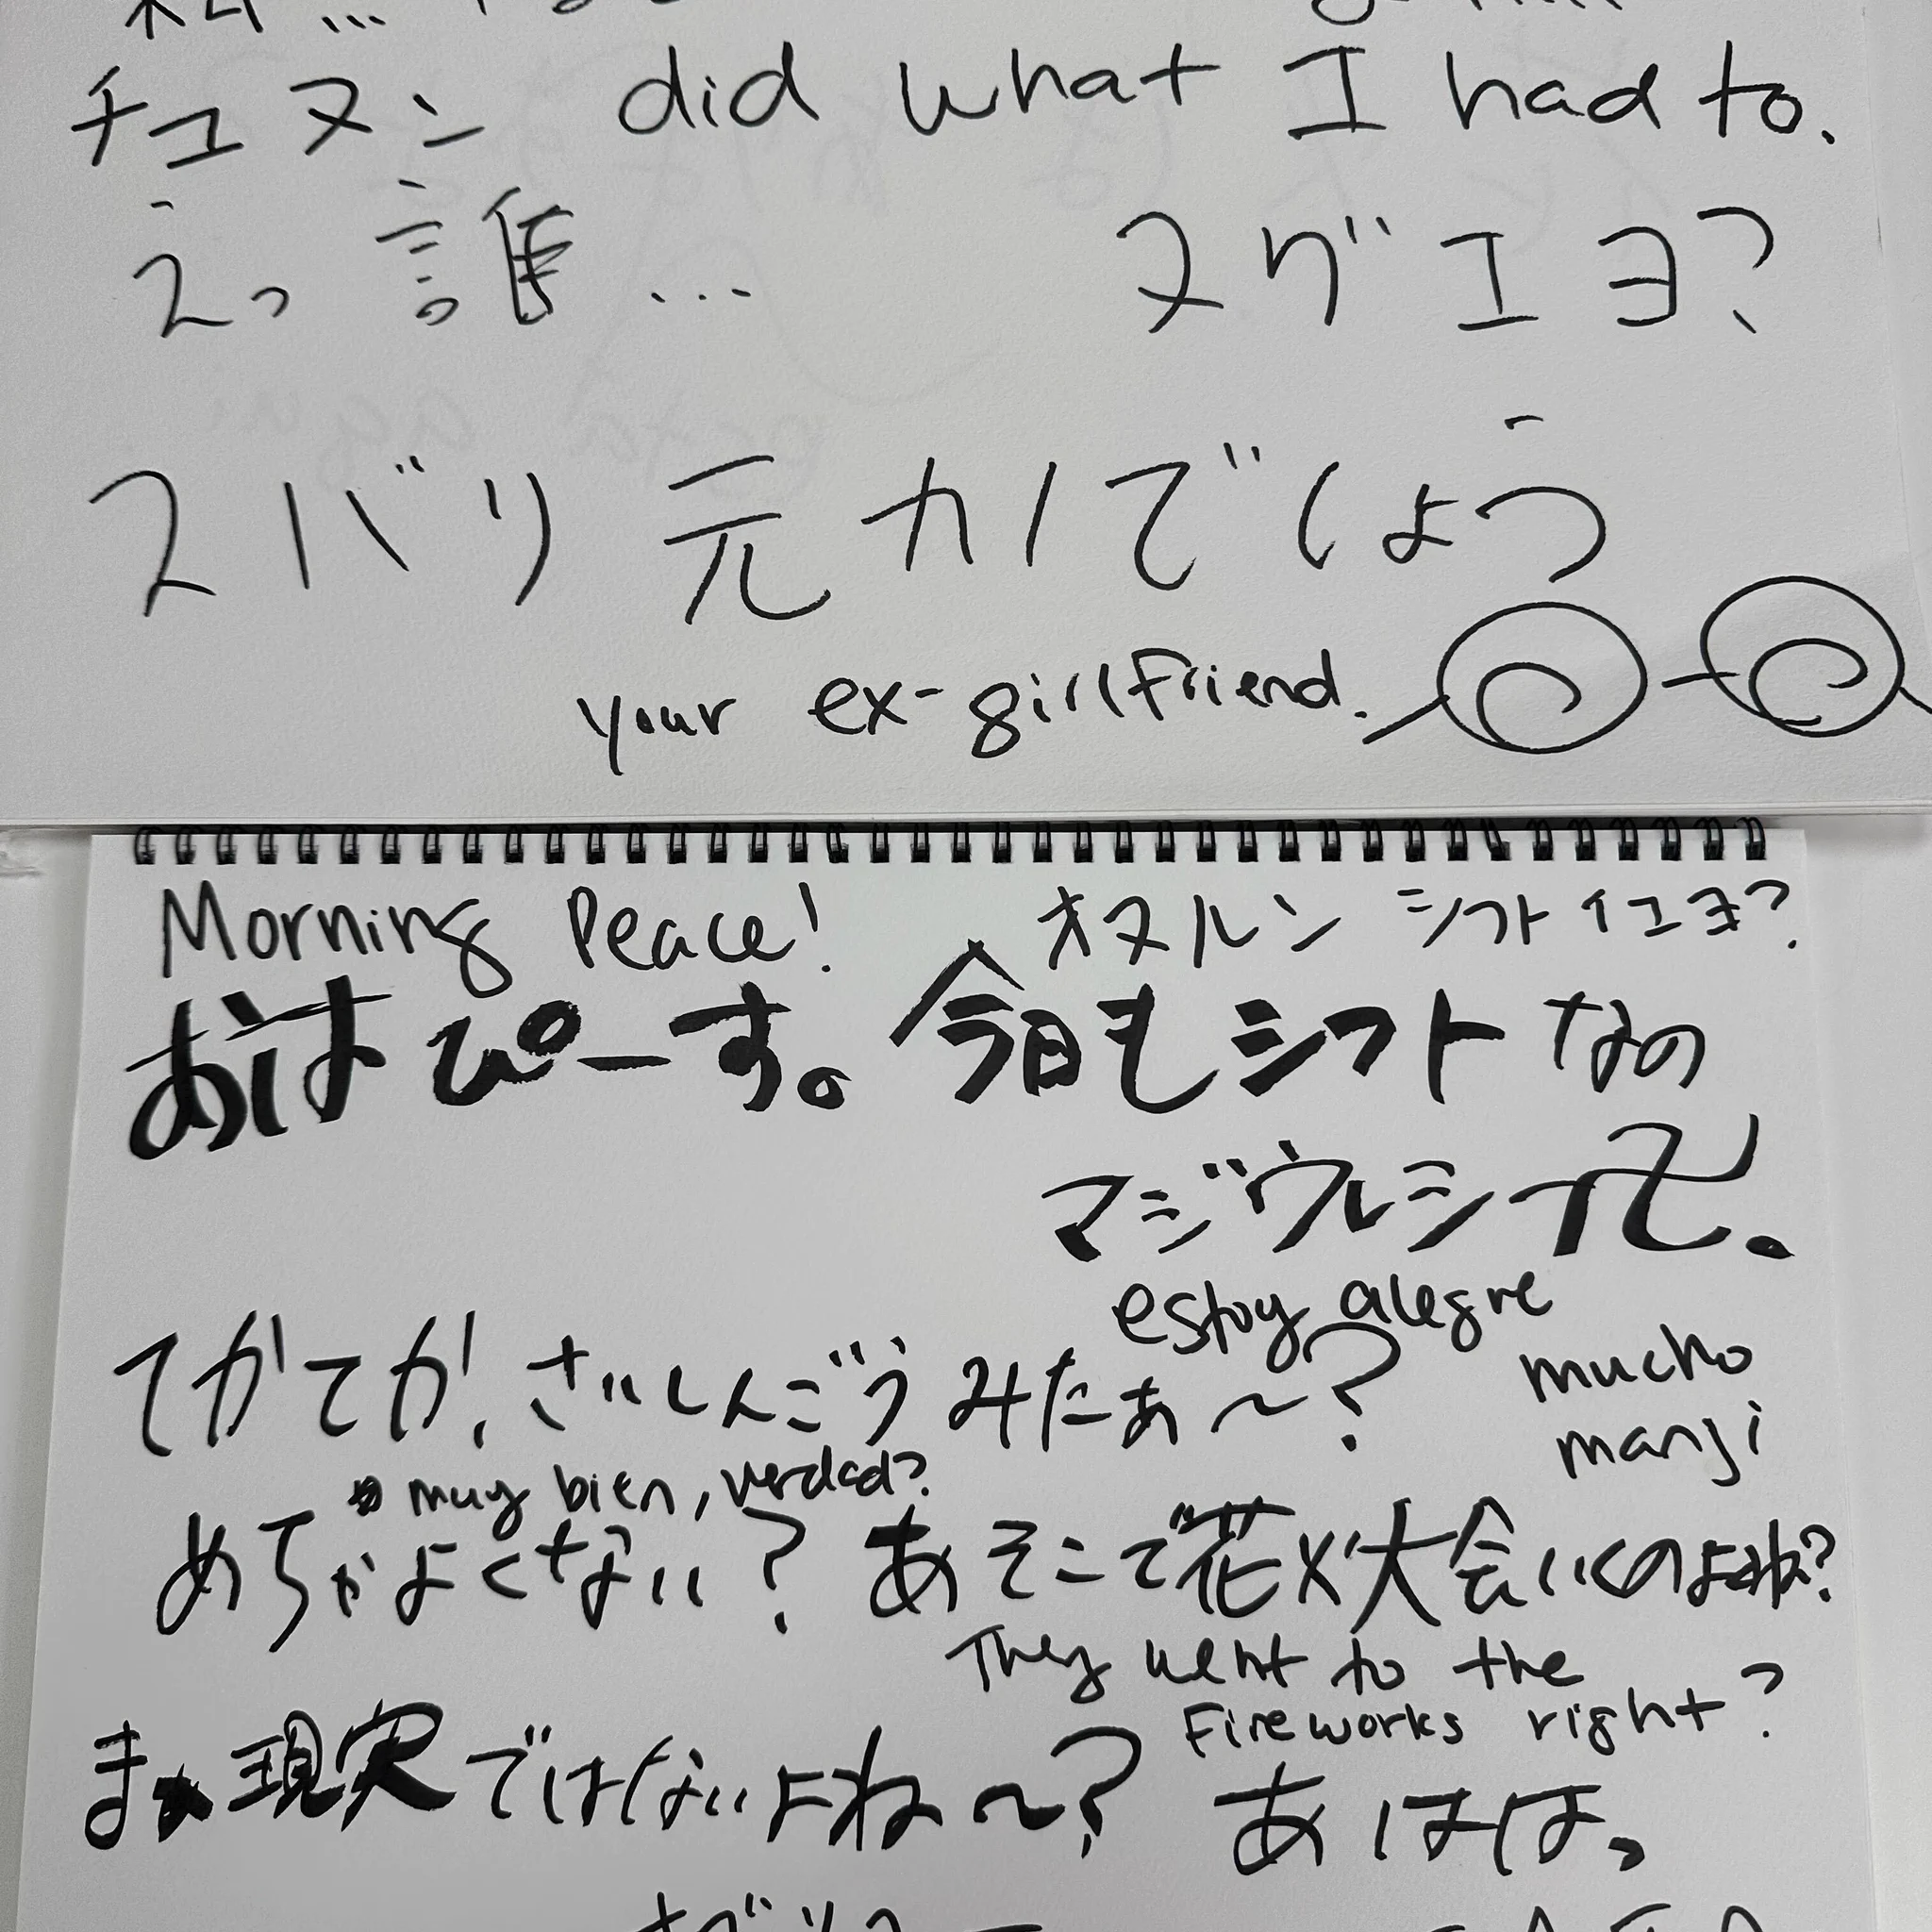 チュヌン did what I had to.
えっ 誰... ヌグエヨ?
ズバリ 元カノでしょう
your ex-girlfriend.
Morning Peace! オヌルン シフトイエヨ?
おはぴーす。今日もシフトなの
マジウレシイ卍。
estoy alegre
mucho
manji
てかてか、さいしんごうみたぁ〜?
muy bien, verdad?
めちゃよくない? あそこで花火大会いくのよね?
They went to the
Fireworks right?
まぁ現実ではないよね〜? あはは。